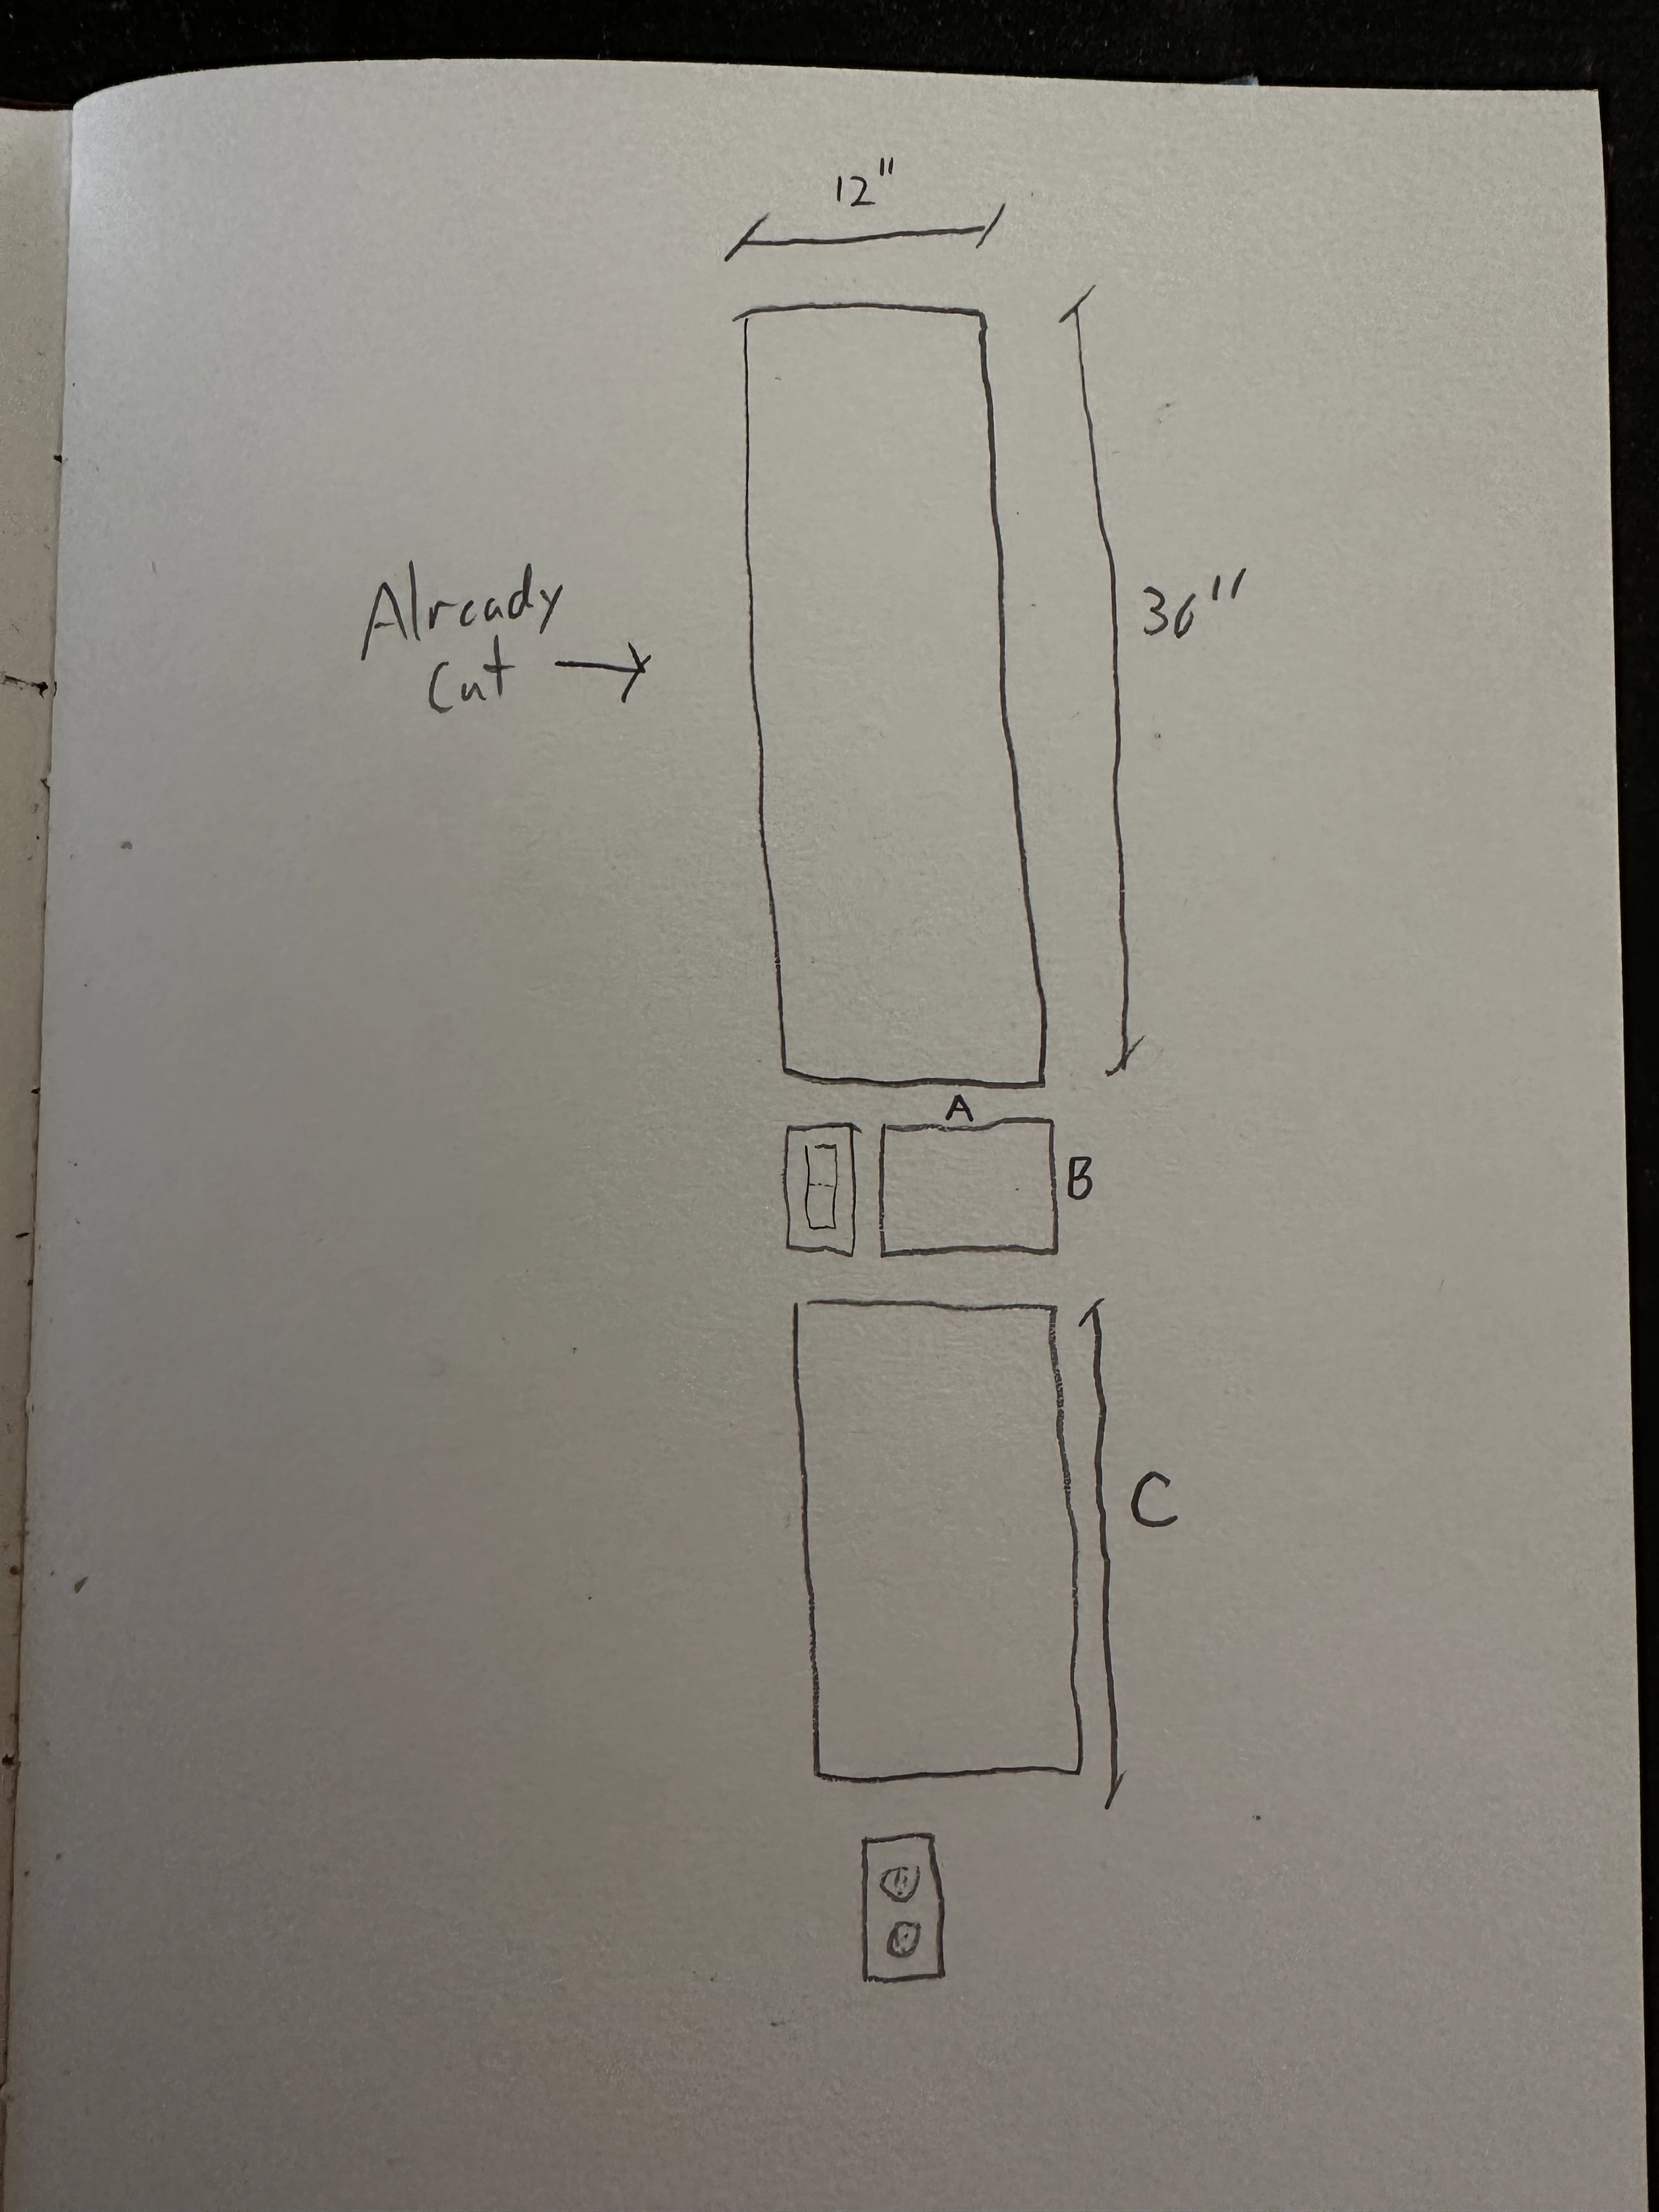 12"
Already
cut →
36"
A
B
C